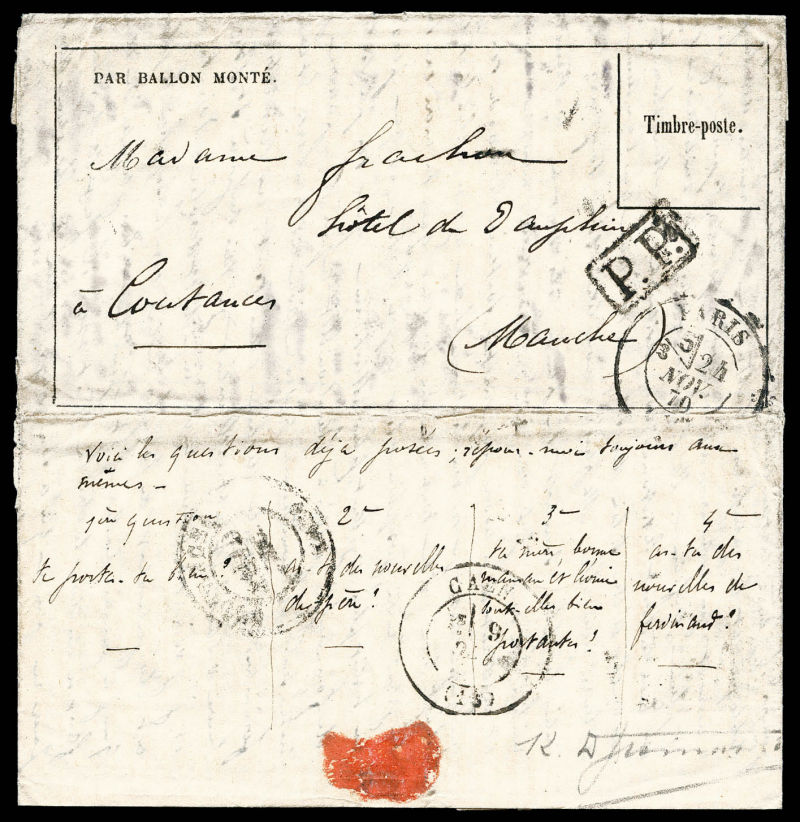 PAR BALLON MONTÉ.
Timbre-poste.
Madame Frachon
hôtel du Dauphin
à Coutances
(Manche)
P.P.
PARIS
24
NOV.
70
Voici les questions déjà posées ; répons-moi toujours aux
mêmes -
1ère question
te portes-tu bien ?
2e
as-tu des nouvelles
de père ?
3e
ta mère, bonne
maman et
sont-elles bien
portantes ?
4e
as-tu des
nouvelles de
ferdinand ?
CAEN
9